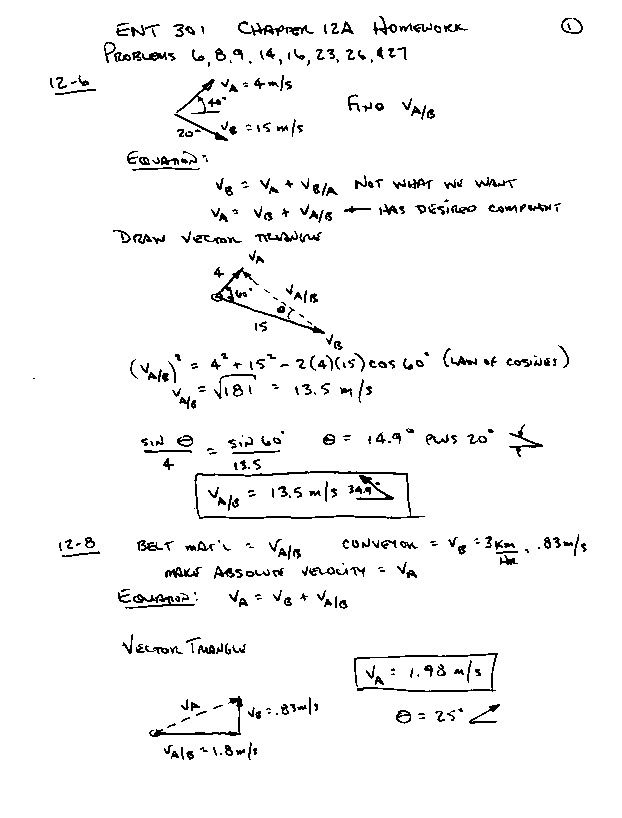 ENT 301 CHAPTER 12A HOMEWORK ①
PROBLEMS 6, 8, 9, 14, 16, 23, 26, &27
12-6
VA = 4 m/s
40°
FIND VA/B
20° VB = 15 m/s
EQUATION:
VB = VA + VB/A NOT WHAT WE WANT
VA = VB + VA/B ← HAS DESIRED COMPONENT
DRAW VECTOR TRIANGLE
VA
4
60°
VA/B
θ
15
VB
(VA/B)² = 4² + 15² - 2(4)(15) cos 60° (LAW OF COSINES)
VA/B = √181 = 13.5 m/s
SIN θ / 4 = SIN 60° / 13.5 θ = 14.9° PLUS 20°
VA/B = 13.5 m/s 34.9°
12-8 BELT MAT'L = VA/B CONVEYOR = VB = 3 Km/HR = .83 m/s
ABSOLUTE VELOCITY = VA
EQUATION: VA = VB + VA/B
VECTOR TRIANGLE
VA = 1.98 m/s
VA
VB = .83 m/s
θ = 25°
VA/B = 1.8 m/s